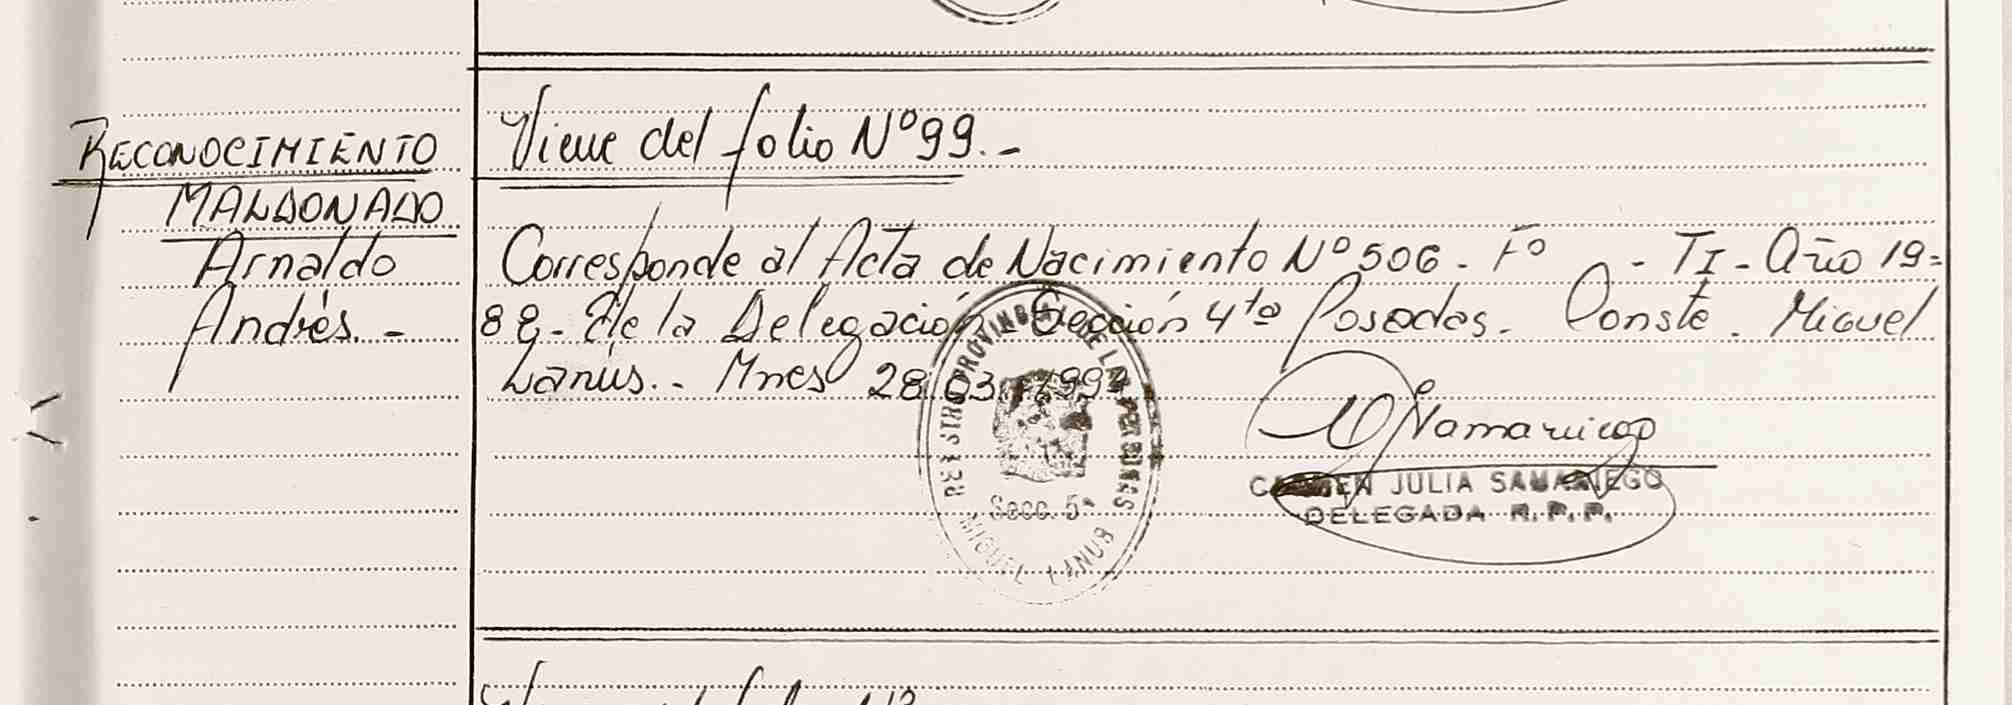 RECONOCIMIENTO
MALDONADO
Arnaldo
Andrés. -
Viene del folio Nº 99. -
Corresponde al Acta de Nacimiento Nº 506 - Fº - TI - Año 19=
88 - de la Delegación Sección 4ta Posadas. Conste. Miguel
Lanús. - Mnes 28.03.
REGISTRO PROVINCIAL DE LAS PERSONAS
Secc. 5ª
MIGUEL LANUS
CARMEN JULIA SAMANIEGO
DELEGADA R. P. P.